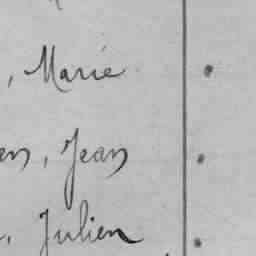 , Marie
en, Jean
, Julien